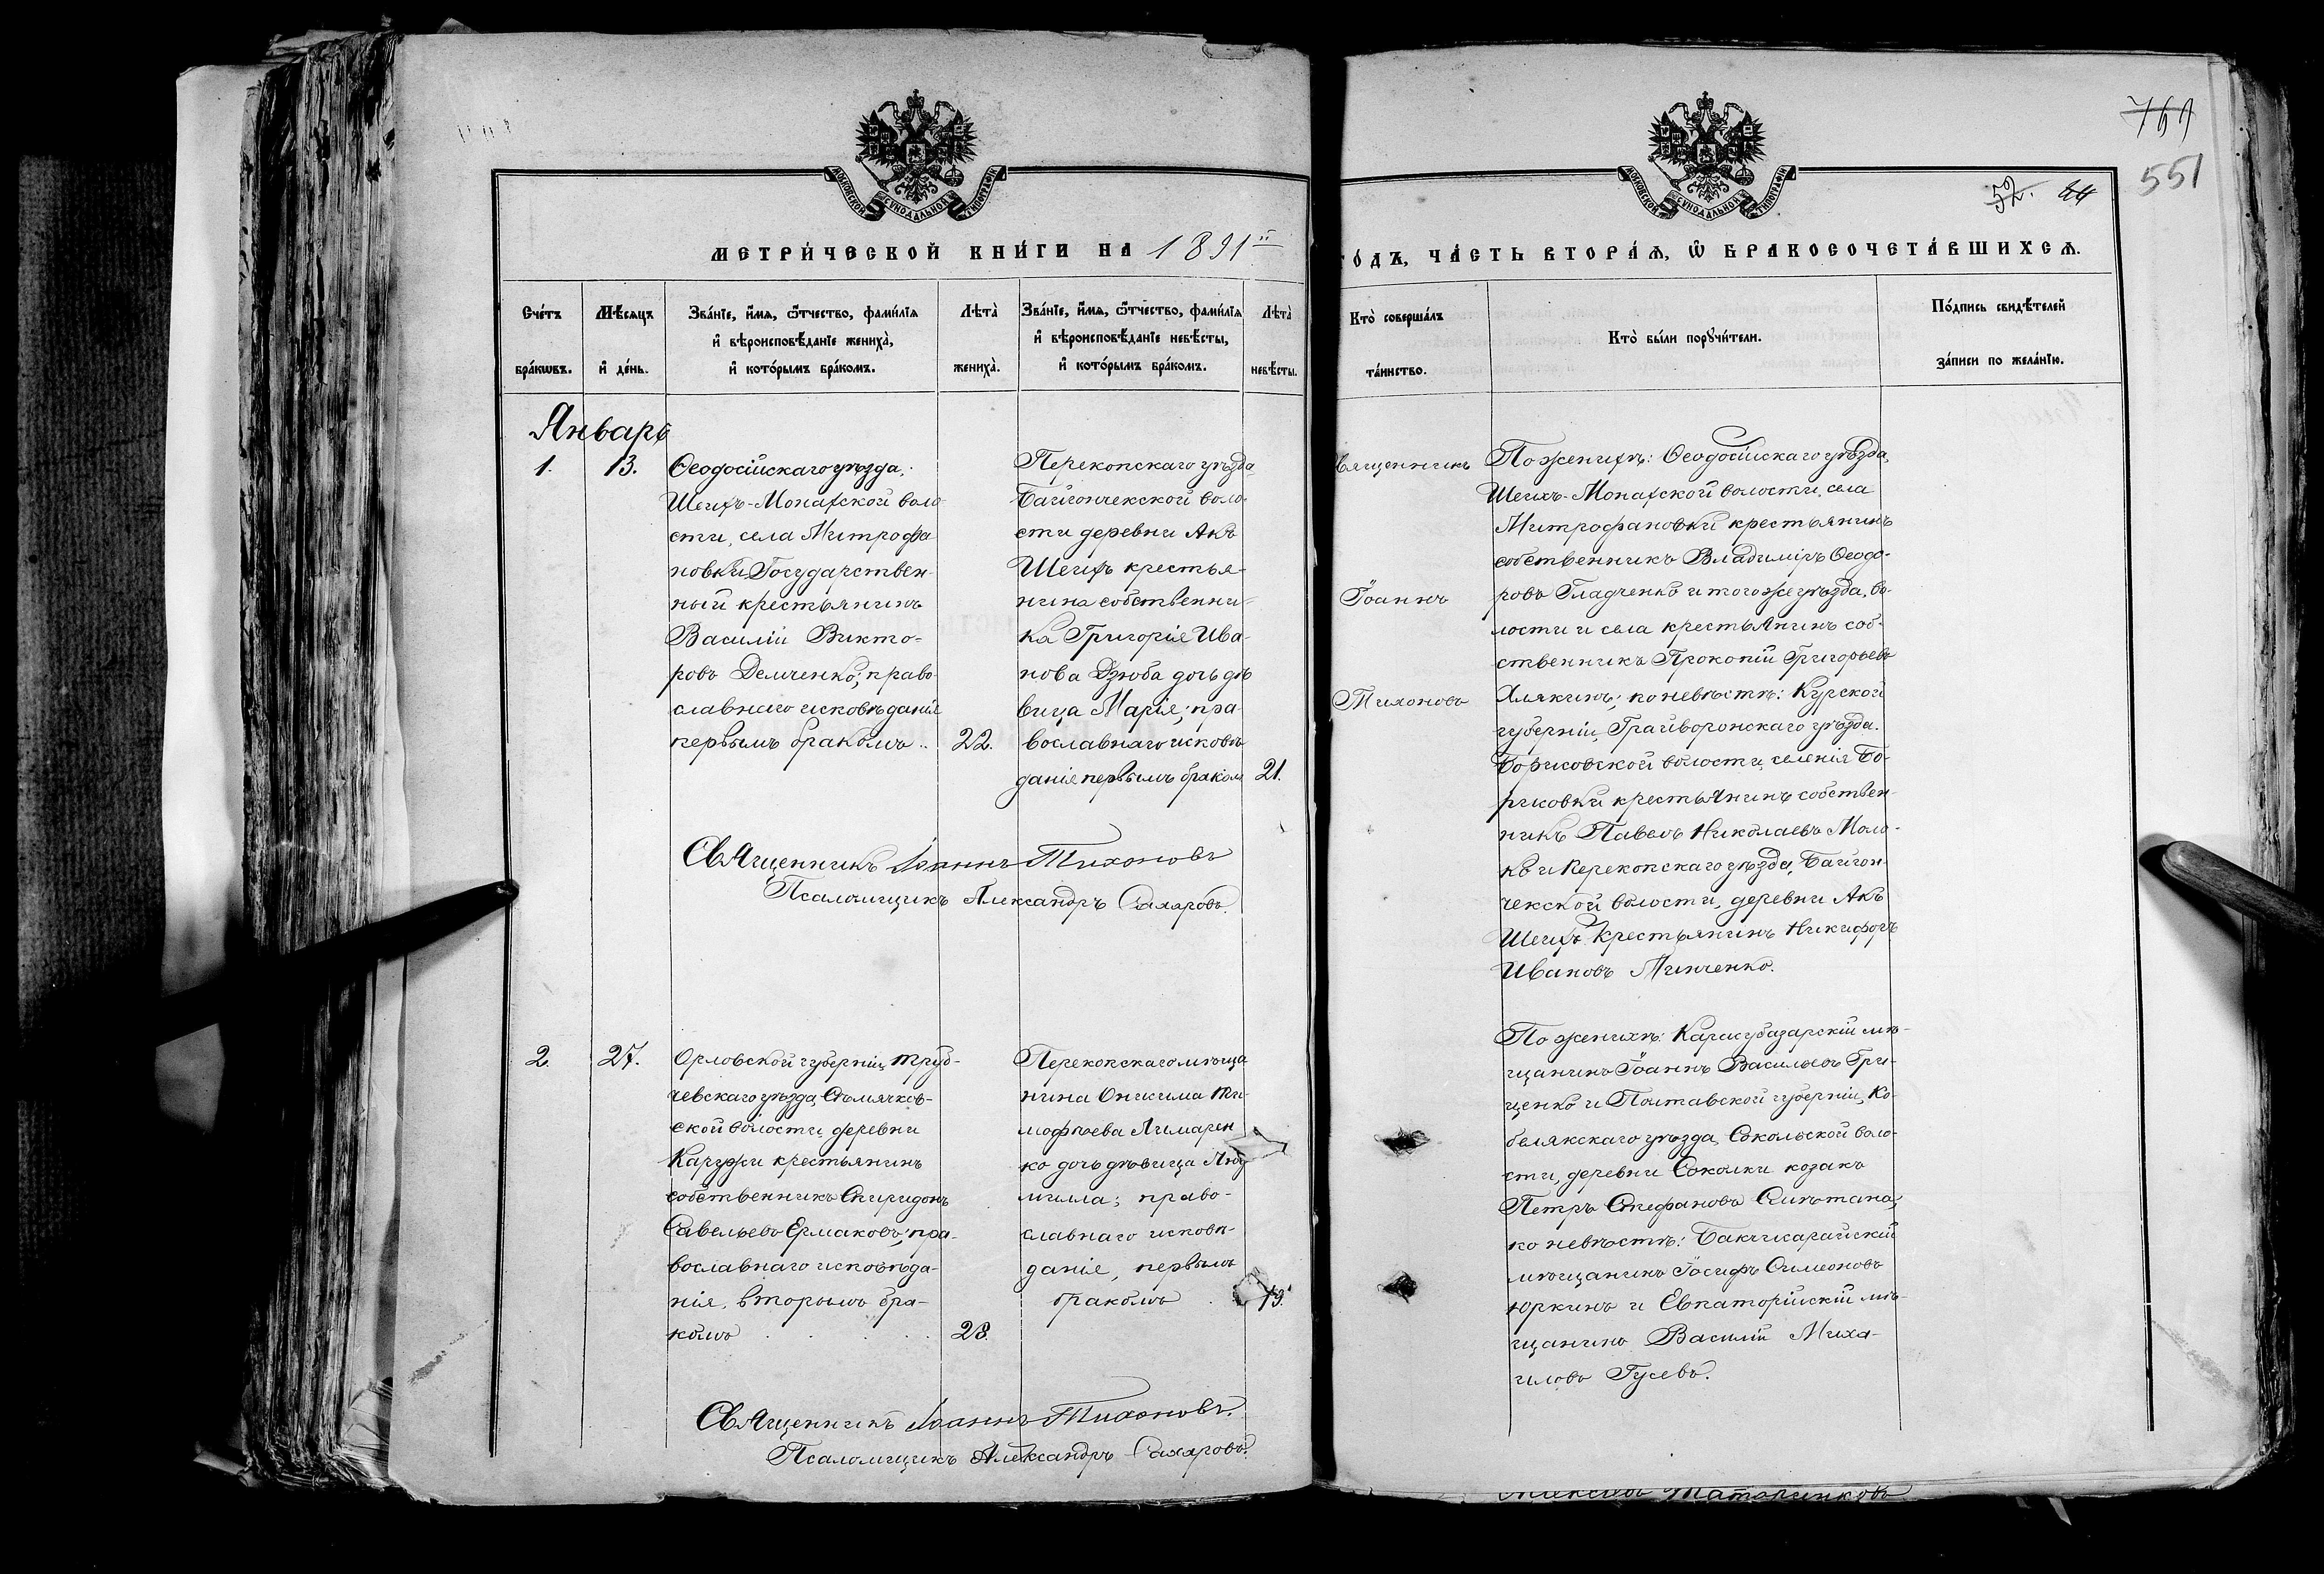 769
551
52. 44
МОСКОВСКОЙ СѴНОДАЛЬНОЙ ТИПОГРАФІИ
МОСКОВСКОЙ СѴНОДАЛЬНОЙ ТИПОГРАФІИ
МЕТРИ́ЧЕСКОЙ КНИ́ГИ НА 1891й
ГО́ДЪ, ЧА́СТЬ ВТОРА́Ѧ, Ѿ БРАКОСОЧЕТА́ВШИХСѦ.
Сче́тъ
бра́кѡвъ.
Мѣ́сѧцъ
и҆ де́нь.
Зва́нїе, и҆́мѧ, ѻ҆́тчество, фамі́лїѧ
и҆ вѣроисповѣ́данїе жениха̀,
и҆ кото́рымъ бра́комъ.
Лѣта̀
жениха̀.
Зва́нїе, и҆́мѧ, ѻ҆́тчество, фамі́лїѧ
и҆ вѣроисповѣ́данїе невѣ́сты,
и҆ кото́рымъ бра́комъ.
Лѣта̀
невѣ́сты.
Кто̀ соверша́лъ
та́инство.
Кто̀ бы́ли порꙋчи́тели.
По́дпись свидѣ́телей
за́писи по жела́нїю.
Январь
1.
13.
Ѳеодосійскаго уѣзда,
Шеихъ-Монахской воло-
сти, села Митрофа-
новки Государствен-
ный крестьянинъ
Василій Викто-
ровъ Демченко; право-
славнаго исповѣданія
первымъ бракомъ ..
22.
Перекопскаго уѣзда
Байгончекской воло-
сти деревни Акъ
Шеихъ крестья-
нина собственни-
ка Григорія Ива-
нова Дзюба дочь дѣ
вица Марія; пра-
вославнаго исповѣ
данія первымъ бракомъ
21.
Священникъ
Іоаннъ
Тихоновъ
По женихѣ: Ѳеодосійскаго уѣзда,
Шеихъ-Монахской волости, села
Митрофановки крестьянинъ
собственникъ Владиміръ Ѳеодо-
ровъ Гладченко и того же уѣзда, во-
лости и села крестьянинъ соб-
ственникъ Прокопій Григорьевъ
Хлякинъ; по невѣстѣ: Курской
губерніи, Грайворонскаго уѣзда.
Борисовской волости, селенія Бо-
рисовки крестьянинъ собствен-
никъ Павелъ Николаевъ Моло-
ко и Перекопскаго уѣзда, Байгон-
чекской волости, деревни Акъ
Шеихъ крестьянинъ Никифоръ
Ивановъ Линченко.
Священникъ Іоаннъ Тихоновъ
Псаломщикъ Александръ Сахаровъ.
2.
27.
Орловской губерніи, Труб-
чевскаго уѣзда, Сѣмячков-
ской волости, деревни
Каружи крестьянинъ
собственникъ Спиридонъ
Савельевъ Ермаковъ; пра-
вославнаго исповѣда-
нія, вторымъ бра-
комъ . . . . .
28.
Перекопскаго мѣща
нина Онисима Ти-
мофѣева Лимарен
ко дочь дѣвица Люд
милла; право-
славнаго исповѣ-
данія, первымъ
бракомъ .
19.
По женихѣ: Карасубазарскій мѣ-
щанинъ Іоаннъ Васильевъ Гри-
ценко и Полтавской губерніи, Ко-
белякскаго уѣзда, Сокольской воло-
сти, деревни Соколки козакъ
Петръ Стефановъ Смѣтана;
по невѣстѣ: Бакчисарайскій
мѣщанинъ Іосифъ Симеоновъ
Юркинъ и Евпаторійскій мѣ-
щанинъ Василій Миха-
иловъ Гусевъ.
Священникъ Іоаннъ Тихоновъ.
Псаломщикъ Александръ Сахаровъ.